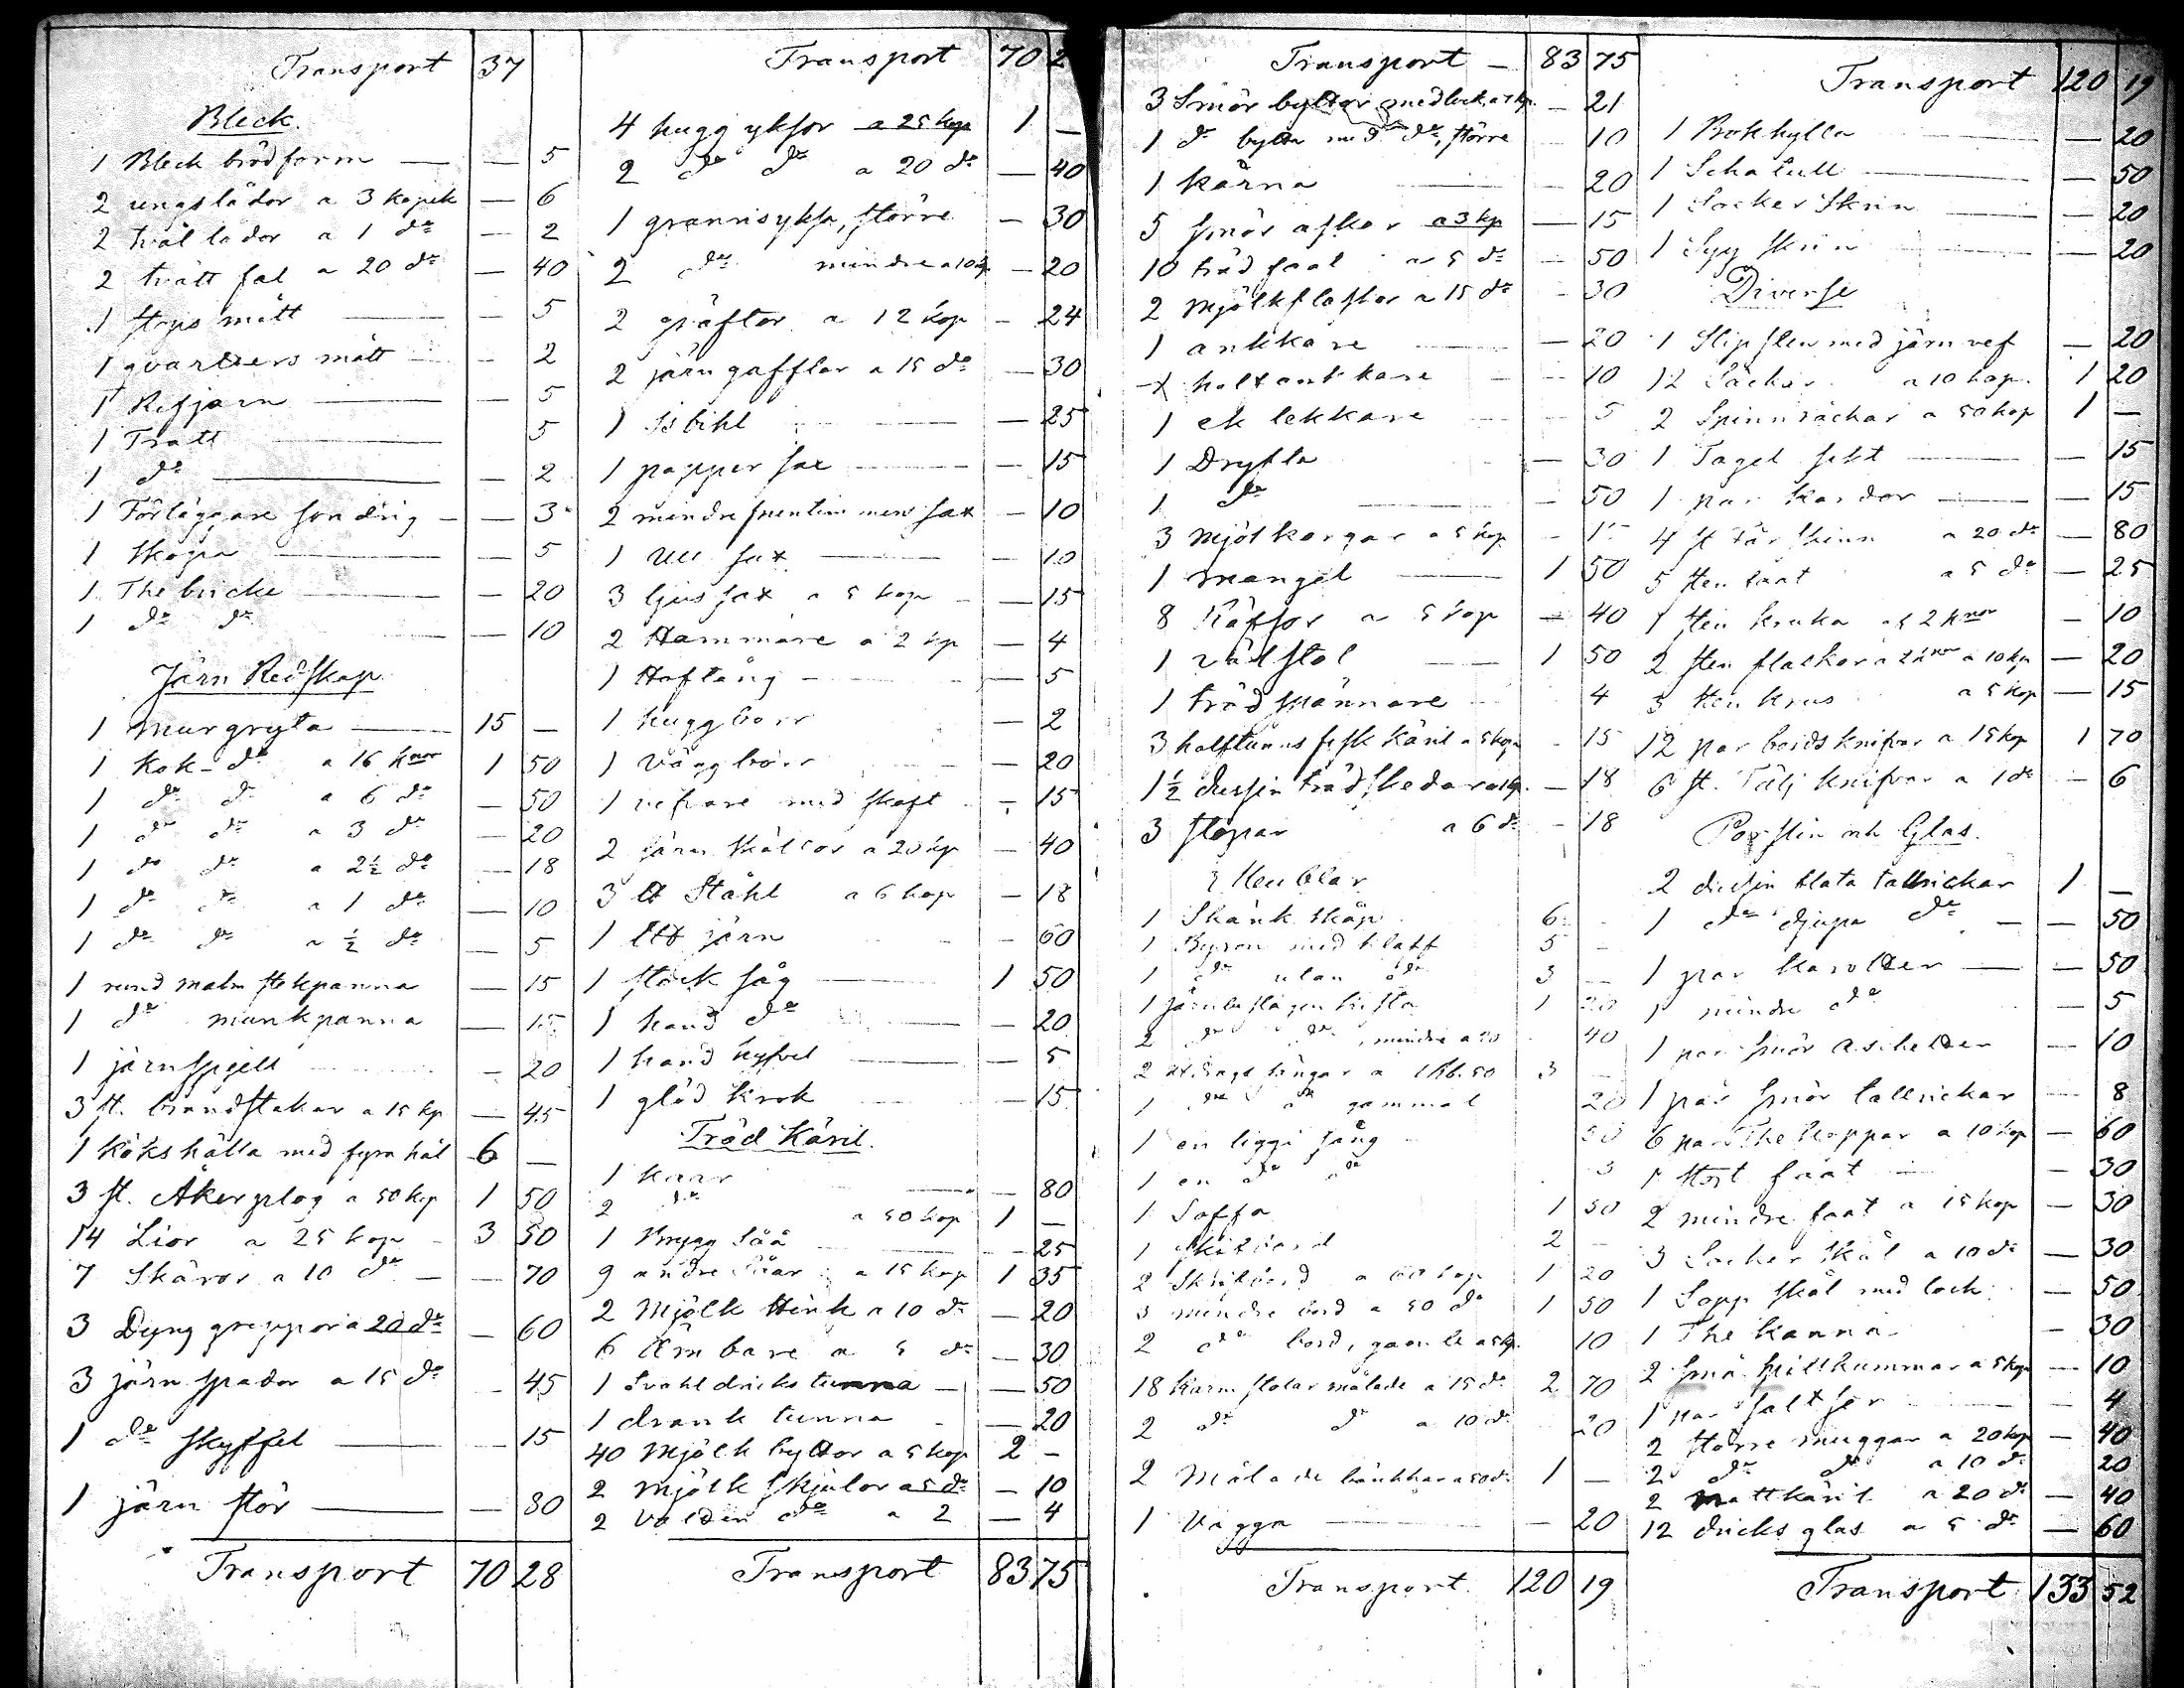 Transport 37
Bleck.
1 Bleck brödform — — 5
2 ungslådor a 3 kopek — 6
2 tvål lador a 1 do — 2
2 tvätt fat a 20 do — 40
1 stops mått — — 5
1 qvarters mått — - 2
1 Refjärn — — 5
1 Tratt — 5
1 do — — 2
1 Förläggare sondrig — — 3
1 Skopa — — 5
1 The bricke — — 20
1 do do — 10
Järn Redskap
1 Murgryta — 15 —
1 Kok- do a 16 knor 1 50
1 do do a 6 do — 50
1 do do a 3 do — 20
1 do do a 2½ do — 18
1 do do a 1 do — 10
1 do do a ½ do — 5
1 rund malm stekpanna — 15
1 do munkpanna — 15
1 järnspjell — 20
3 st. brandstakar a 15 kp — 45
1 Kökshälla med fyra hål 6 —
3 st. Åkerplog a 50 kop 1 50
14 Liar a 25 kop - 3 50
7 Skäror a 10 do — — 70
3 Dyng greppor a 20 do — 60
3 järn spador a 15 do - 45
1 do skyffel — — 15
1 järn stör — — 80
Transport 70 28
Transport 70 2
4 hugg yxsor a 25 kop 1 —
2 do do a 20 do — 40
1 grannsyksa, större — 30
2 do mindre a 10 kp — 20
2 gräftor a 12 kop — 24
2 järn gafflar a 15 do — 30
1 Isbihl — — 25
1 papper sax — — 15
2 mindre fruntimmers sax — 10
1 Ull sax — — 10
3 ljus sax a 5 kop — 15
2 Hammare a 2 kp — 4
1 Hoftång — — 5
1 huggborr — 2
1 Väggborr — 20
1 nefvare med skaft — 15
2 järn skålror a 20 kp — 40
3 lb Ståhl a 6 kop — 18
1 Ltt järn - 60
1 stock såg — 1 50
1 hand do — — 20
1 hand hyfvel — — 5
1 glöd krok — — 15
Träd Käril.
1 karr — — 80
2 do a 50 kop 1 —
1 Brygg Såå — — 25
9 andre Såar a 15 kop 1 35
2 Mjölk Hink a 10 do — 20
6 Ämbare a 5 do — 30
1 Svahldricks tunna — — 50
1 drank tunna - — 20
40 Mjölk byttor a 5 kop 2 -
2 mjölk skjulor a 5 do — 10
2 do a 2 — 4
Transport 83 75
Transport — 83 75
3 Smör byttor med lock a 7 kp. — 21
1 do bytta med do, större 10
1 kärna — - 20
5 smör askar a 3 kp — 15
10 träd faat a 5 do — 50
2 Mjölkflaskor a 15 do - 30
1 ankkare — — 20
1 halfankkare — 10
1 ek lekkare 5
1 Dryfla — 30
1 do — — 50
3 Mjöl korgar a 5 kop -
1 mangel — 1 50
8 Räffsor a 5 kop — 40
1 väfstol — 1 50
1 träd spännare 4
3 halftunns fisk käril a 5 kop 15
1½ dussin träd skedar a 1 kp. — 18
3 stopar a 6 do - 18
Meublar
1 Skänk skåp 6 -
1 Byron med klaff 5 -
1 do utan do 3 —
1 Järnbeslagen kista 1 20
2 do do, mindre a 20 40
2 utdrags sängar a 1 Rb. 50 3 —
1 do gammal 20
1 en liggi säng 50
1 en do do 3
1 Soffa 1 50
1 bord 2 -
2 Skrifbord a 60 kop 1 20
3 mindre bord a 50 do 1 50
2 do bord, gamle a 5 kp. 10
18 Karm stolar målade a 15 do 2 70
2 do do a 10 do 20
2 Målade bänkkar a 50 do 1 —
1 Vagga — — 20
Transport 120 19
Transport 120 19
1 Bokhylla — — 20
1 Schatull — — 50
1 Socker Skrin — — 20
1 Syy skrin — — 20
Diverse
1 Slipsten med järn vef — 20
12 Säckar a 10 kop. 1 20
2 Spinnråckar a 50 kop 1 —
1 Tagel sikt — — 15
1 par kardor — — 15
4 st Får skinn a 20 do — 80
5 sten faat a 5 do — 25
1 sten kruka a 2 knor — 10
2 sten flaskor a 2 knor a 10 kp — 20
3 sten krus a 5 kop — 15
12 par bords knifvar a 15 kop 1 70
6 st. Tälj knifvar a 1 do — 6
Porslin och Glas.
2 dussin flata tallrickar 1 —
1 do djupa do — — 50
1 par karotter — — 50
1 mindre do — 5
1 par smör aschetter — 10
1 par smör tallrickar — 8
6 par The Koppar a 10 kop — 60
1 stort faat — — 30
2 mindre faat a 15 kop — 30
3 Socker skål a 10 do — 30
1 Sopp skål med lock — 50
1 The kanna — 30
2 små spillkummar a 5 kop — 10
1 par saltser — — 4
2 större muggar a 20 kop — 40
2 do do a 10 do 20
2 mattkäril a 20 do — 40
12 dricks glas a 5 do — 60
Transport 133 52